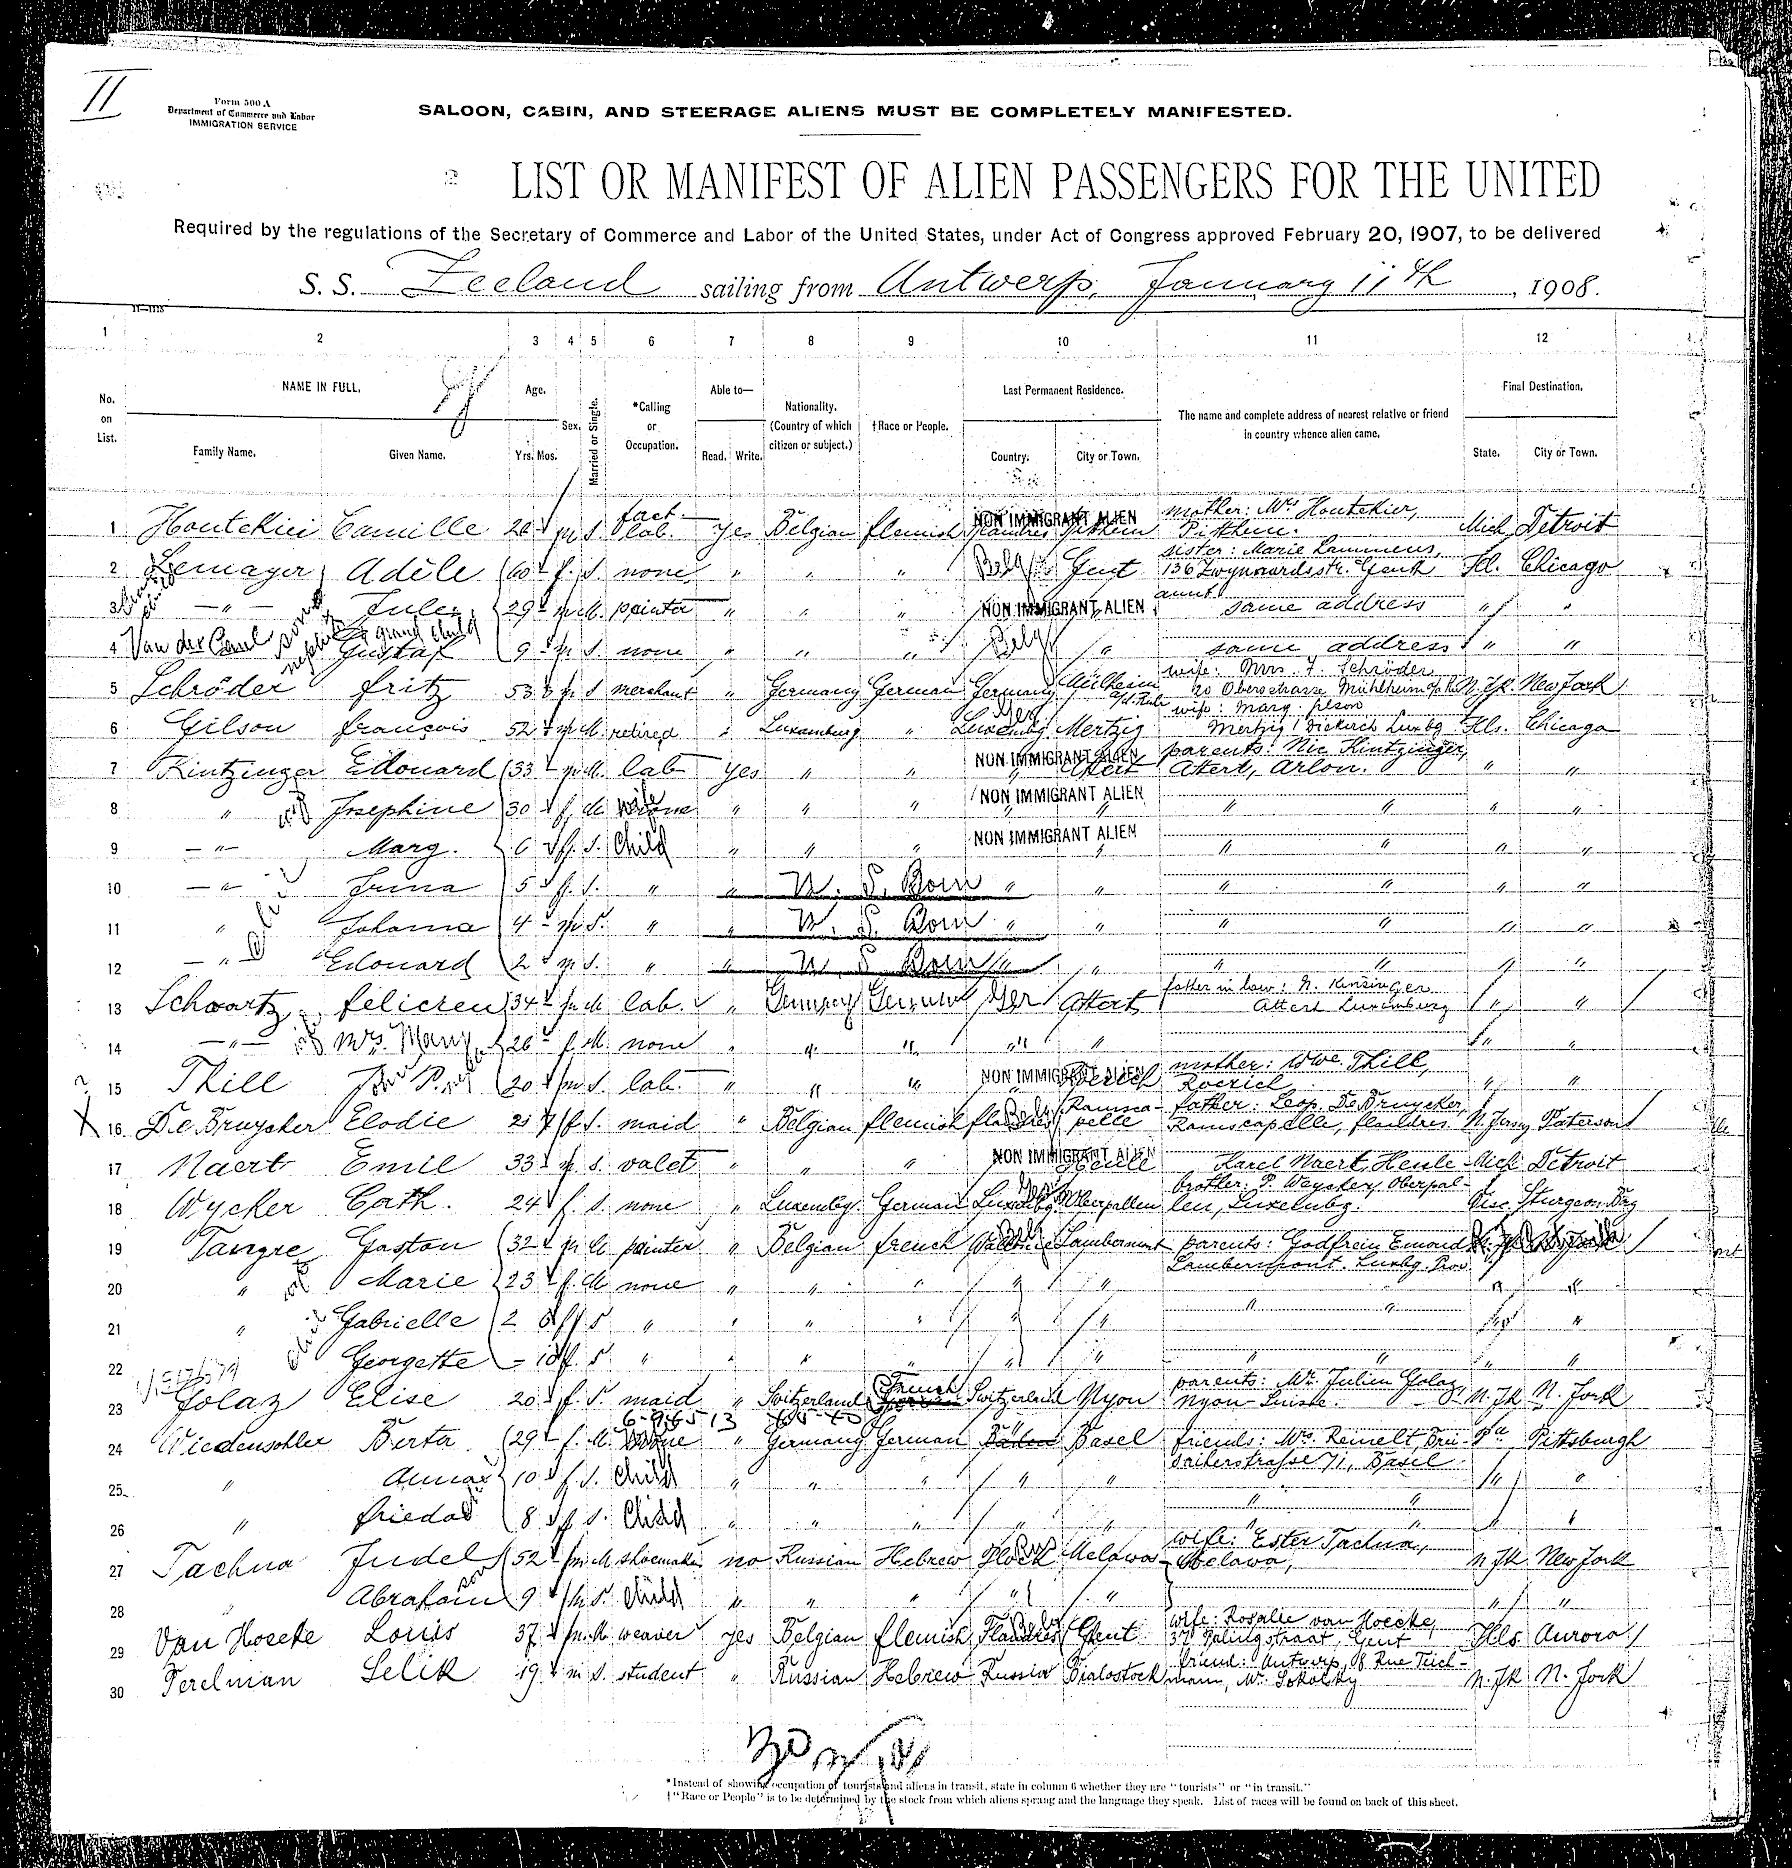 II
Form 500 A
Department of Commerce and Labor
IMMIGRATION SERVICE
SALOON, CABIN, AND STEERAGE ALIENS MUST BE COMPLETELY MANIFESTED.
LIST OR MANIFEST OF ALIEN PASSENGERS FOR THE UNITED
Required by the regulations of the Secretary of Commerce and Labor of the United States, under Act of Congress approved February 20, 1907, to be delivered
S. S. Zeeland sailing from Antwerp, January 11th, 1908.
1 2 3 4 5 6 7 8 9 10 11 12
No. on List. NAME IN FULL. Family Name. Given Name. Age. Yrs. Mos. Sex. Married or Single. *Calling or Occupation. Able to— Read. Write. Nationality. (Country of which citizen or subject.) †Race or People. Last Permanent Residence. Country. City or Town. The name and complete address of nearest relative or friend in country whence alien came. Final Destination. State. City or Town.
1 Houtekier Camille m S fact. lab. yes Belgian flemish NON IMMIGRANT ALIEN mother: Mrs Houtekier, Pitthem. Mich Detroit
2 Lemayer Adèle 60 f. S. none " " " Belg Gent sister: Marie Lammens, 136 Gent Ill. Chicago
3 " Jules 29 m M. painter " " " NON IMMIGRANT ALIEN aunt same address " "
4 Van der grand child Gustaf 9 m S. none " " " Belg " same address " "
5 Schröder fritz 53 m S merchant " Germany German Germany Mülheim a/d Ruhr wife: Mrs. F. Schröder, 20 Oberstrasse Mühlheim a/d R. N.Yk. New York
6 Gilson françois 52 m M. retired " Luxemburg " Luxembg Ger Mertzig wife: Marg. Mertzig Diekirch Luxbg Ills. Chicago
7 Kintzinger Edouard 33 m M. lab yes " " NON IMMIGRANT ALIEN Attert parents: Nic Kintzinger, Attert, Arlon. " "
8 " wf Josephine 30 f. M. wife " " " NON IMMIGRANT ALIEN " " " " "
9 " Marg. 6 f. S. Child " " " NON IMMIGRANT ALIEN " " " " "
10 " Irma 5 f. S. " " U. S. Born " " " " " "
11 " Johanna 4 m S. " " U. S. Born " " " " " "
12 " Edouard 2 m S. " " U S Born " " " " " "
13 Schwartz felicien 34 m M lab. " Germany German Ger Attert father in law: N. Kinsinger Attert Luxemburg " "
14 " wf Mrs. Mary 26 f. M. none " " " " " " "
15 Thill John P. 20 m S. lab. " " " NON IMMIGRANT ALIEN mother: Wwe. Thill, Roerich " "
16 De Bruycker Elodie 21 7 f S. maid " Belgian flemish flandres Ramscapelle father: Leop. De Bruycker, Ramscapelle, flandres N. Jersey Paterson
17 Naert Emil 33 m S. valet " " " NON IMMIGRANT ALIEN Heule Karel Naert, Heule Mich Detroit
18 Wycker Cath. 24 f. S. none " Luxembg. German Luxembg Ger Oberpallen brother: P. Weycker, Oberpallen, Luxembg. Wisc. Sturgeon Bay
19 Tangre Gaston 32 m M painter " Belgian french Lambermont parents: Godfrein Lambermont. Luxbg. Prov
20 " wf Marie 23 f. M. none " " " " " " "
21 " Gabrielle 2 6 f S " " " " " " " " " "
22 Georgette - 10 f. S " " " " " " " " " "
23 Golaz Elise 20 f. S. maid " Switzerland French Switzerland Nyon parents: Mr. Julien Golaz, Nyon Suisse N. Yk N. York
24 Wiedensohler Berta 29 f. M. " Germany German Basel friends: Mrs. Reinelt, 71, Basel Pa Pittsburgh
25 " Anna 10 f. S. Child " " " " " " "
26 " frieda 8 f. S. Child " " " " " " " " "
27 Tachna Judel 52 m M. shoemaker no Russian Hebrew Plock Mclawa wife: Ester Tachna, Mclawa, N. Yk New York
28 " Abraham son 9 m S. Child " " " " " " "
29 Van Hoecke Louis 37 m M weaver yes Belgian flemish Flandres Gent wife: Rosalie van Hoecke, 37 Palingstraat, Gent Ills Aurora
30 Perelman Selik 19 m S. student " Russian Hebrew Russia Bialostock friend: Antwerp, 8 Rue Teichmann, Mr. Sokolsky N. Yk N. York
30
*Instead of showing occupation of tourists and aliens in transit, state in column 6 whether they are "tourists" or "in transit."
†"Race or People" is to be determined by the stock from which aliens sprang and the language they speak. List of races will be found on back of this sheet.